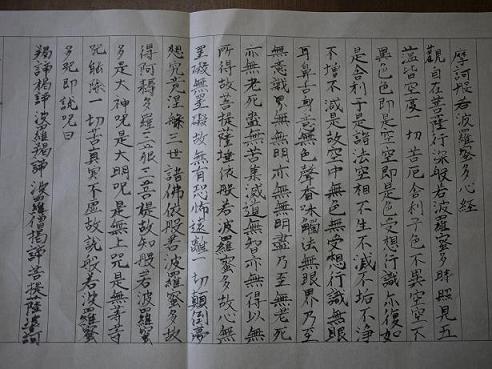 摩訶般若波羅蜜多心経
觀自在菩薩行深般若波羅蜜多時照見五
蘊皆空度一切苦厄舍利子色不異空空不
異色色即是空空即是色受想行識亦復如
是舍利子是諸法空相不生不滅不垢不浄
不増不減是故空中無色無受想行識無眼
耳鼻舌身意無色聲香味觸法無眼界乃至
無意識界無無明亦無無明盡乃至無老死
亦無老死盡無苦集滅道無智亦無得以無
所得故菩提薩埵依般若波羅蜜多故心無
罣礙無罣礙故無有恐怖遠離一切顛倒夢
想究竟涅槃三世諸佛依般若波羅蜜多故
得阿耨多羅三藐三菩提故知般若波羅蜜
多是大神呪是大明呪是無上呪是無等等
呪能除一切苦真実不虚故説般若波羅蜜
多呪即説呪曰
羯諦羯諦波羅羯諦 波羅僧羯諦菩提薩婆訶